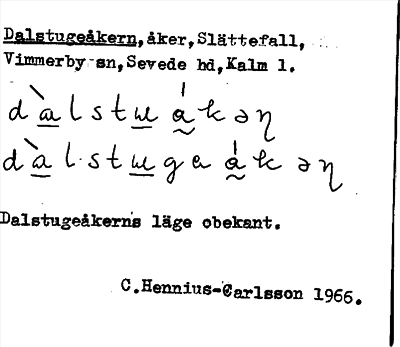 Dalstugeåkern, åker, Slättefall,
Vimmerby sn, Sevede hd, Kalm l.
dàlstu̲ákəη
dàlstu̲gaákəη
Dalstugeåkerns läge obekant.
C.Hennius-Carlsson 1966.